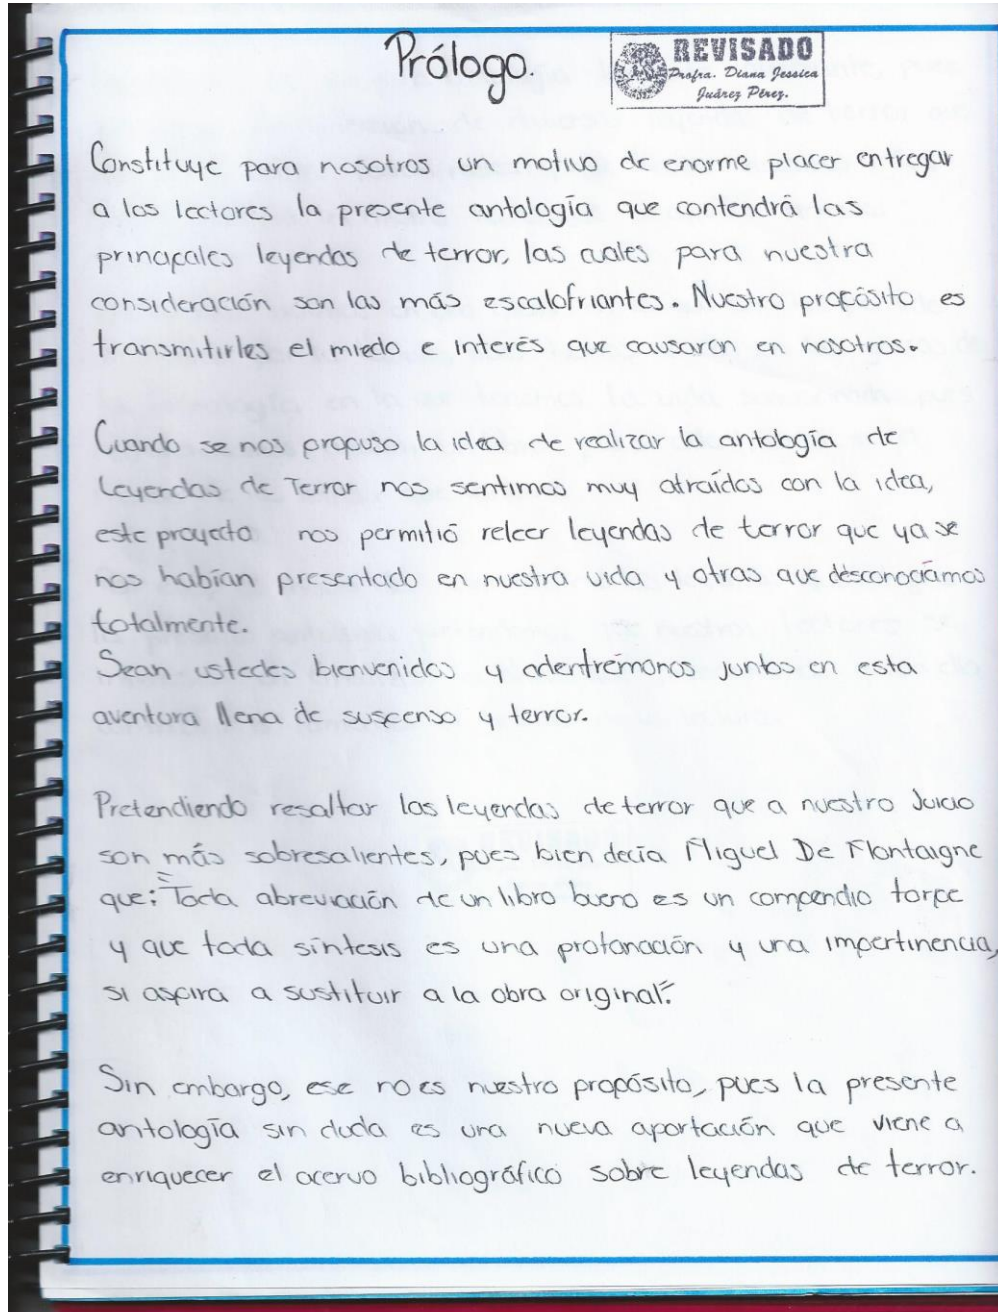 Prólogo.
REVISADO
Profra. Diana Jessica
Juárez Pérez.
Constituye para nosotros un motivo de enorme placer entregar
a los lectores la presente antología que contendrá las
principales leyendas de terror, las cuales para nuestra
consideración son las más escalofriantes. Nuestro propósito es
transmitirles el miedo e interés que causaron en nosotros.
Cuando se nos propuso la idea de realizar la antología de
Leyendas de Terror nos sentimos muy atraídos con la idea,
este proyecto nos permitió releer leyendas de terror que ya se
nos habían presentado en nuestra vida y otras que desconocíamos
totalmente.
Sean ustedes bienvenidos y adentrémonos juntos en esta
aventura llena de suspenso y terror.
Pretendiendo resaltar las leyendas de terror que a nuestro Juicio
son más sobresalientes, pues bien decía Miguel De Montaigne
que: "Toda abreviación de un libro bueno es un compendio torpe
y que toda síntesis es una profanación y una impertinencia,
si aspira a sustituir a la obra original".
Sin embargo, ese no es nuestro propósito, pues la presente
antología sin duda es una nueva aportación que viene a
enriquecer el acervo bibliográfico sobre leyendas de terror.